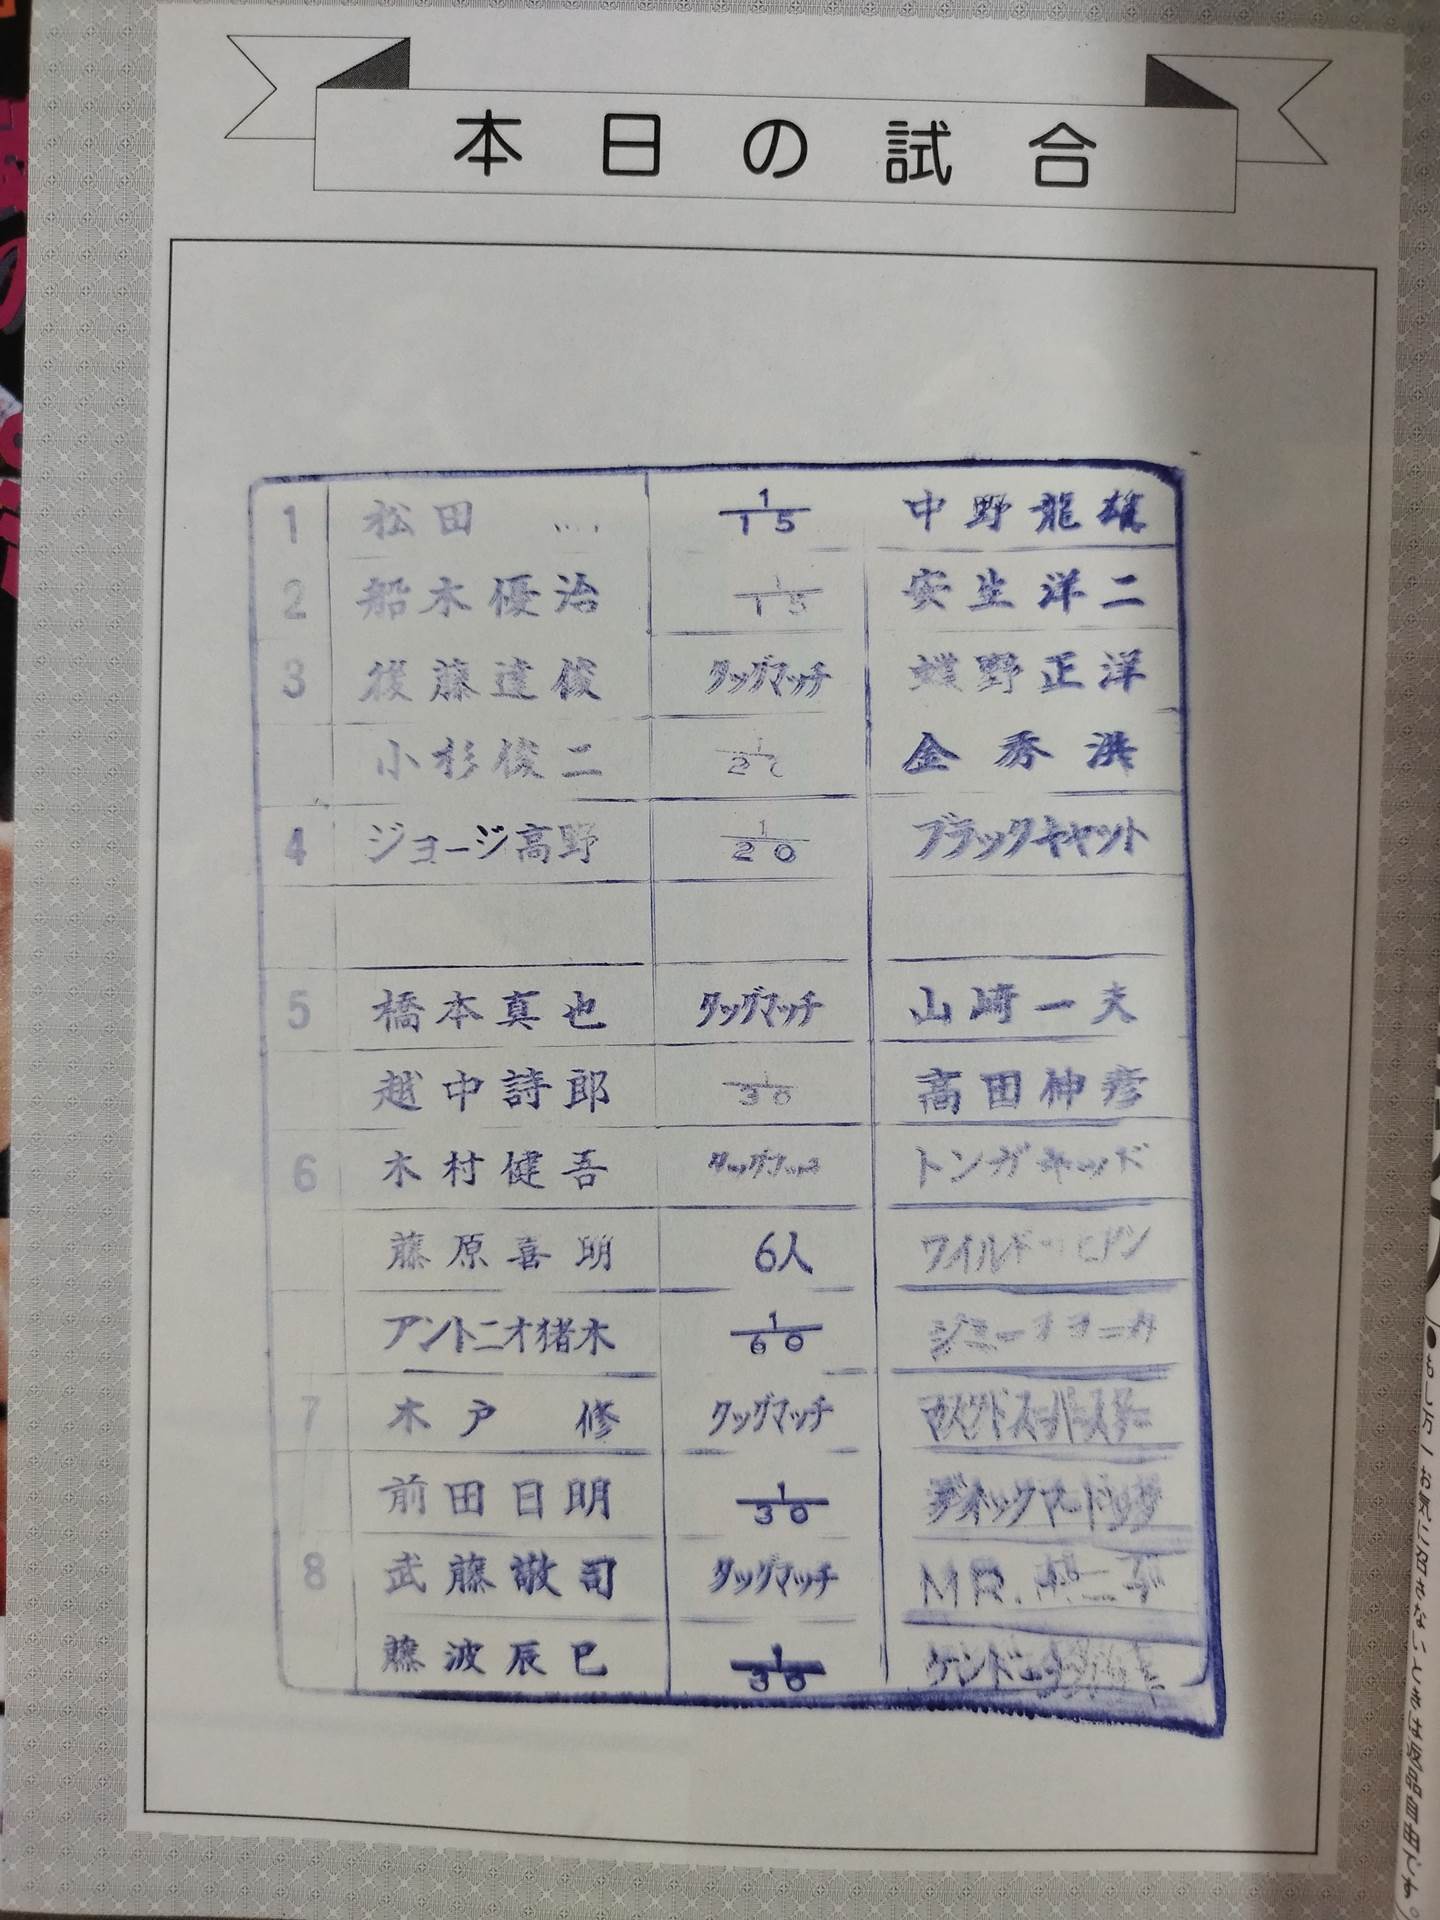 本日の試合
1 松田 1/15 中野龍雄
2 船木優治 1/15 安生洋二
3 後藤達俊 タッグマッチ 蝶野正洋
小杉俊二 金秀洪
4 ジョージ高野 1/20 ブラックキャット
5 橋本真也 タッグマッチ 山崎一夫
越中詩郎 1/30 高田伸彦
6 木村健吾 タッグマッチ トンガキッド
藤原喜明 6人 ワイルド
アントニオ猪木 1/60 ジミー
7 木戸修 タッグマッチ マスクドスーパースター
前田日明 1/30 ディックマードック
8 武藤敬司 タッグマッチ MR.ポーゴ
藤波辰巳 1/30 ケンドー